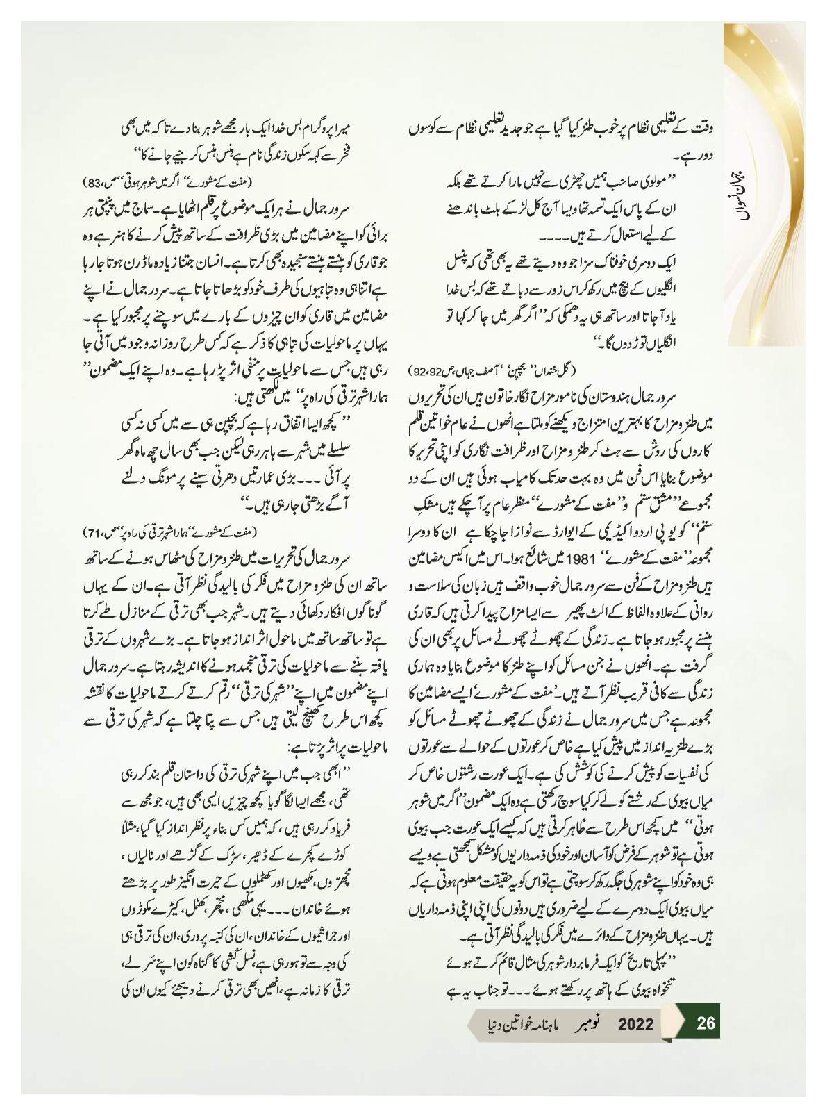 جہانِ نسواں
وقت کے تعلیمی نظام پر خوب طنز کیا گیا ہے جو جدید تعلیمی نظام سے کوسوں
دور ہے۔
”مولوی صاحب ہمیں چھڑی سے نہیں مارا کرتے تھے بلکہ
ان کے پاس ایک تسمہ تھا ویسا آج کل لڑکے بلٹ باندھنے
کے لیے استعمال کرتے ہیں۔۔۔۔
ایک دوسری خوفناک سزا جو وہ دیتے تھے یہ بھی تھی کہ پنسل
انگلیوں کے بیچ میں رکھ کر اس زور سے دباتے تھے کہ بس خدا
یاد آجاتا اور ساتھ ہی یہ دھمکی کہ ”اگر گھر میں جا کر کہا تو
انگلیاں توڑ دوں گا۔“
(گل خنداں ”بچپن“ آصف جہاں، ص 92،92)
سرور جمال ہندوستان کی نامور مزاح نگار خاتون ہیں ان کی تحریروں
میں طنز و مزاح کا بہترین امتزاج دیکھنے کو ملتا ہے انھوں نے عام خواتین قلم
کاروں کی روش سے ہٹ کر طنز و مزاح اور ظرافت نگاری کو اپنی تحریر کا
موضوع بنایا اس فن میں وہ بہت حد تک کامیاب ہوئی ہیں ان کے دو
مجموعے ”مشق ستم و“ ”مفت کے مشورے“ منظر عام پر آچکے ہیں مشکِ
ستم“ کو یو پی اردو اکیڈیمی کے ایوارڈ سے نوازا جاچکا ہے ان کا دوسرا
مجموعہ ”مفت کے مشورے“ 1981 میں شائع ہوا۔ اس میں اکیس مضامین
ہیں طنز و مزاح کے فن سے سرور جمال خوب واقف ہیں زبان کی سلاست و
روانی کے علاوہ الفاظ کے الٹ پھیر سے ایسا مزاح پیدا کرتی ہیں کہ قاری
ہنسنے پر مجبور ہوجاتا ہے۔ زندگی کے چھوٹے چھوٹے مسائل پر بھی ان کی
گرفت ہے۔ انھوں نے جن مسائل کو اپنے طنز کا موضوع بنایا وہ ہماری
زندگی سے کافی قریب نظر آتے ہیں۔ ’مفت کے مشورے‘ ایسے مضامین کا
مجموعہ ہے جس میں سرور جمال نے زندگی کے چھوٹے چھوٹے مسائل کو
بڑے طنزیہ انداز میں پیش کیا ہے خاص کر عورتوں کے حوالے سے عورتوں
کی نفسیات کو پیش کرنے کی کوشش کی ہے۔ ایک عورت رشتوں خاص کر
میاں بیوی کے رشتے کو لے کر کیا سوچ رکھتی ہے وہ ایک مضمون ”اگر میں شوہر
ہوتی“ میں کچھ اس طرح سے ظاہر کرتی ہیں کہ کیسے ایک عورت جب بیوی
ہوتی ہے تو شوہر کے فرض کو آسان اور خود کی ذمہ داریوں کو مشکل سمجھتی ہے ویسے
ہی وہ خود کو اپنے شوہر کی جگہ رکھ کر سوچتی ہے تو اس کو یہ حقیقت معلوم ہوتی ہے کہ
میاں بیوی ایک دوسرے کے لیے ضروری ہیں دونوں کی اپنی اپنی ذمہ داریاں
ہیں۔ یہاں طنز و مزاح کے دائرے میں فکر کی بالیدگی نظر آتی ہے۔
”پہلی تاریخ کو ایک فرمابردار شوہر کی مثال قائم کرتے ہوئے
تنخواہ بیوی کے ہاتھ پر رکھتے ہوئے ۔۔۔تو جناب یہ ہے
میرا پروگرام بس خدا ایک بار مجھے شوہر بنا دے تا کہ میں بھی
فخر سے کہہ سکوں زندگی نام ہے ہنس ہنس کر جیے جانے کا“
(مفت کے مشورے ”اگر میں شوہر ہوتی“ ص،83)
سرور جمال نے ہر ایک موضوع پر قلم اٹھایا ہے۔ سماج میں پنپتی ہر
برائی کو اپنے مضامین میں بڑی ظرافت کے ساتھ پیش کرنے کا ہنر ہے وہ
جو قاری کو ہنستے ہنستے سنجیدہ بھی کرتا ہے۔ انسان جتنا زیادہ ماڈرن ہوتا جا رہا
ہے اتنا ہی وہ تباہیوں کی طرف خود کو بڑھاتا جاتا ہے۔ سرور جمال نے اپنے
مضامین میں قاری کو ان چیزوں کے بارے میں سوچنے پر مجبور کیا ہے ۔
یہاں پر ماحولیات کی تباہی کا ذکر ہے کہ کس طرح روزانہ وجود میں آتی جا
رہی ہیں جس سے ماحولیات پر منفی اثر پڑ رہا ہے۔ وہ اپنے ایک مضمون”
ہمارا شہر ترقی کی راہ پر“ میں لکھتی ہیں:
”کچھ ایسا اتفاق رہا ہے کہ بچپن ہی سے میں کسی نہ کسی
سلسلے میں شہر سے باہر رہی لیکن جب بھی سال چھ ماہ گھر
پر آئی ۔۔۔بڑی عمارتیں دھرتی سینے پر مونگ دلنے
آگے بڑھتی جارہی ہیں۔“
(مفت کے مشورے“ ہمارا شہر ترقی کی راہ پر“ ص،71)
سرور جمال کی تحریرات میں طنز و مزاح کی مٹھاس ہونے کے ساتھ
ساتھ ان کی طنز و مزاح میں فکر کی بالیدگی نظر آتی ہے۔ ان کے یہاں
گوناگوں افکار دکھائی دیتے ہیں ۔ شہر جب بھی ترقی کے منازل طے کرتا
ہے تو ساتھ ساتھ میں ماحول اثر انداز ہوجاتا ہے۔ بڑے شہروں کے ترقی
یافتہ بننے سے ماحولیات کی ترقی منجمد ہونے کا اندیشہ رہتا ہے۔ سرور جمال
اپنے مضمون میں اپنے ”شہر کی ترقی“ رقم کرتے کرتے ماحولیات کا نقشہ
کچھ اس طرح کھینچ لیتی ہیں جس سے پتا چلتا ہے کہ شہر کی ترقی سے
ماحولیات پر اثر پڑتا ہے:
”ابھی جب میں اپنے شہر کی ترقی کی داستان قلم بند کر رہی
تھی، مجھے ایسا لگا گویا کچھ چیزیں ایسی بھی ہیں، جو مجھ سے
فریاد کر رہی ہیں، کہ ہمیں کس بناء پر نظر انداز کیا گیا، مثلاً
کوڑے کچرے کے ڈھیر، سڑک کے گڑھے اور نالیاں،
مچھروں، مکھیوں اور کھٹملوں کے حیرت انگیز طور پر بڑھتے
ہوئے خاندان ۔۔۔یہی مکھی، مچھر، کھٹمل، کیڑے مکوڑوں
اور جراثیموں کے خاندان، ان کی کنبہ پروری، ان کی ترقی ہی
کی وجہ سے تو ہو رہی ہے، نسل کشی کا گناہ کون اپنے سر لے،
ترقی کا زمانہ ہے، انھیں بھی ترقی کرنے دیجئے کیوں ان کی
ماہنامہ خواتین دنیا نومبر 2022 26